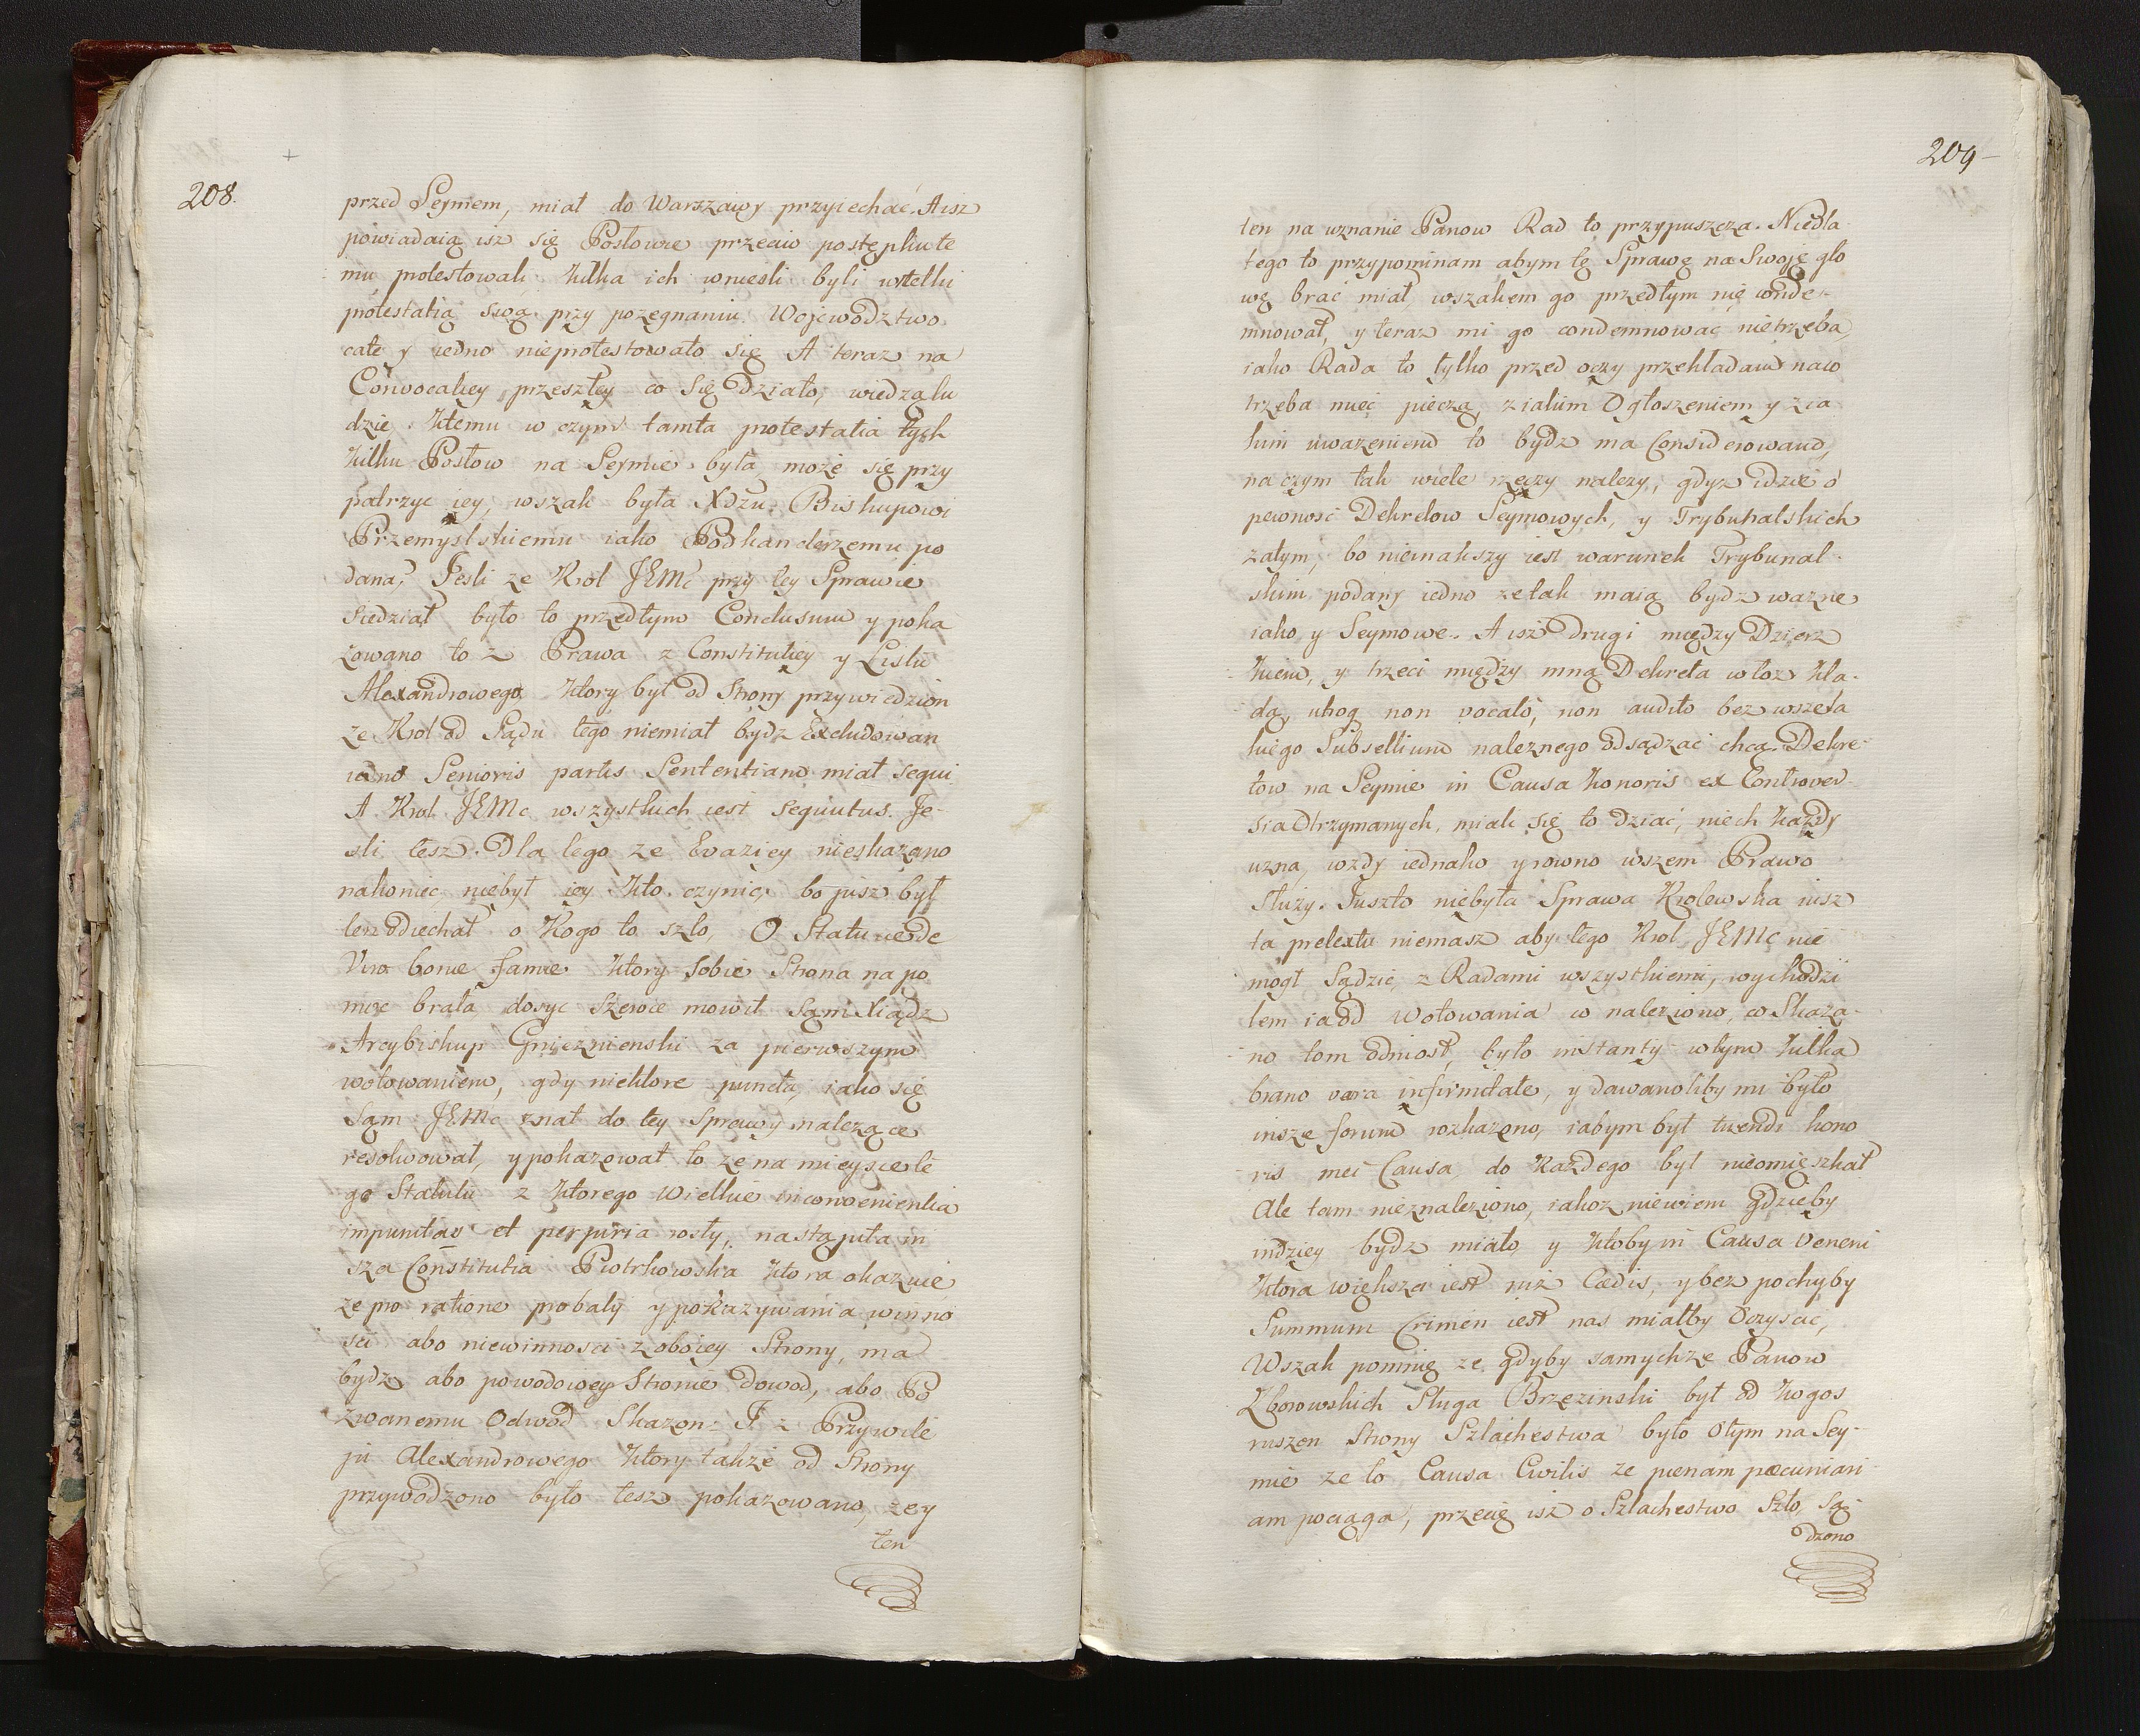 208.
przed Seymem, miał do Warszawy przyiechać. A isz
powiadaią isz się Posłowie przeciw postępku te
mu protestowali, kilka ich wnieśli byli wtelki
protestatią swą przy pozegnaniu. Wojewodztwo
całe y iedno nieprotestowało się A teraz na
Convocatiey przeszłey co się działo, wiedzą lu
dzie. Ktemu w czym tamta protestatia tych
kilku Posłow na Seymie była, może się przy
patrzyc iey, wszak była Xdzu Biskupowi
Przemyslskiemu iako Podkanclerzemu po
dana. Jesli ze Krol JEMc przy tey Sprawie
siedział było to przedtym Conclusum y poka
zowano to z Prawa z Constitutiey y Listu
Alexandrowego, ktory był od Strony przywiedzion
ze Krol od Sądu tego niemiał bydz Excludowan
iedno Senioris partis Sententiam miał sequi
A Krol JEMc wszystkich iest sequutus. Je-
sli tesz. Dla tego ze Evaziey nieskazano
nakoniec niebył iey kto czynic, bo jusz był
ten odiechał o kogo to szło, O Statucie de
Viro bonæ famæ ktory sobie Strona na po
moc brała dosyc szerоce mowił sam Xiądz
Arcybiskup Gnieznienski za pierwszym
wotowaniem, gdy niektore puncta, iako się
sam JEMc znał do tey sprawy nalezące
resolwował, y pokazował to ze na mieysce te
go Statutu z ktorego wielkie inconvenientia
impunitas et perjuria rosły, nastąpiła in
sza Constitutia Piotrkowska ktora okazuie,
ze pro ratione probatij y pokazywania winno
sci abo niewinnosci z oboiey Strony, ma
bydz abo powodowey Stronie dowod, abo Po
zwanemu Odwod Skazon: I z Przywile
ju Alexandrowego ktory takze od Strony
przywodzono było tesz pokazowano, zey
ten
209
ten na uznanie Panow Rad to przypuszcza. Niedla
tego to przypominam abym tę Sprawę na Swoję gło
wę brać miał, wszakem go przedtym nie conde-
mnował, y teraz mi go condemnowac nietrzeba,
iako Rada to tylko przed oczy przekładam na co
trzeba mieć pieczą, z iakim Ogłoszeniem y z ia
kim uwazeniem to bydz ma Considerowano,
na czym tak wiele rzeczy nalezy, gdyz idzie o
pewnosć Dekretow Seymowych, y Trybunalskich
zatym, bo nieinakszy iest warunek Trybunal-
skim podany iedno ze tak maią bydz wazne
iako y Seymowe. A isz drugi między Dzierz
kiem, y trzeci między mną Dekreta włoz kła-
dą, utrog non vocato, non audito bez wszela
kiego Subsellium naleznego odsądzać chcą. Dekre-
tow na Seymie in Causa honoris ex Controver-
sia Otrzymanych, miali się to dziać, niech kazdy
uzna, wzdy iednako y rowno wszem Prawo
Służy. Juszto niebyła Sprawa Krolewska iusz
ta pretextu niemasz aby tego Krol JEMc nie
mogł Sądzic, z Radami wszystkiemi, wychodzi
łem ia od Wotowania co nalezino, co Skaza-
no tom odniosł, było instantij w tym kilka
brano vera infirmitate, y dawanoliby mi było
insze forum rozkazono, iabym był tuendi hono
ris mei Causa, do kazdego był nieomięszkał
Ale tam nieznaleziono, iakoz niewiem gdzieby
indziey bydz miało y ktoby in Causa veneni
ktora większa iest niz Cædis, y bez pochyby
Summum Crimen iest nas miałby Oczyscic,
Wszak pomnię ze gdyby samychze Panow
Zborowskich Sługa Brzezinski był od kogos
ruszon Strony Szlachestwa było o tym na Sey-
mie ze to Causa Civilis ze pænam pæcuniari
am pociąga, przecię isz o Szlachestwo Szło, Są-
dzono